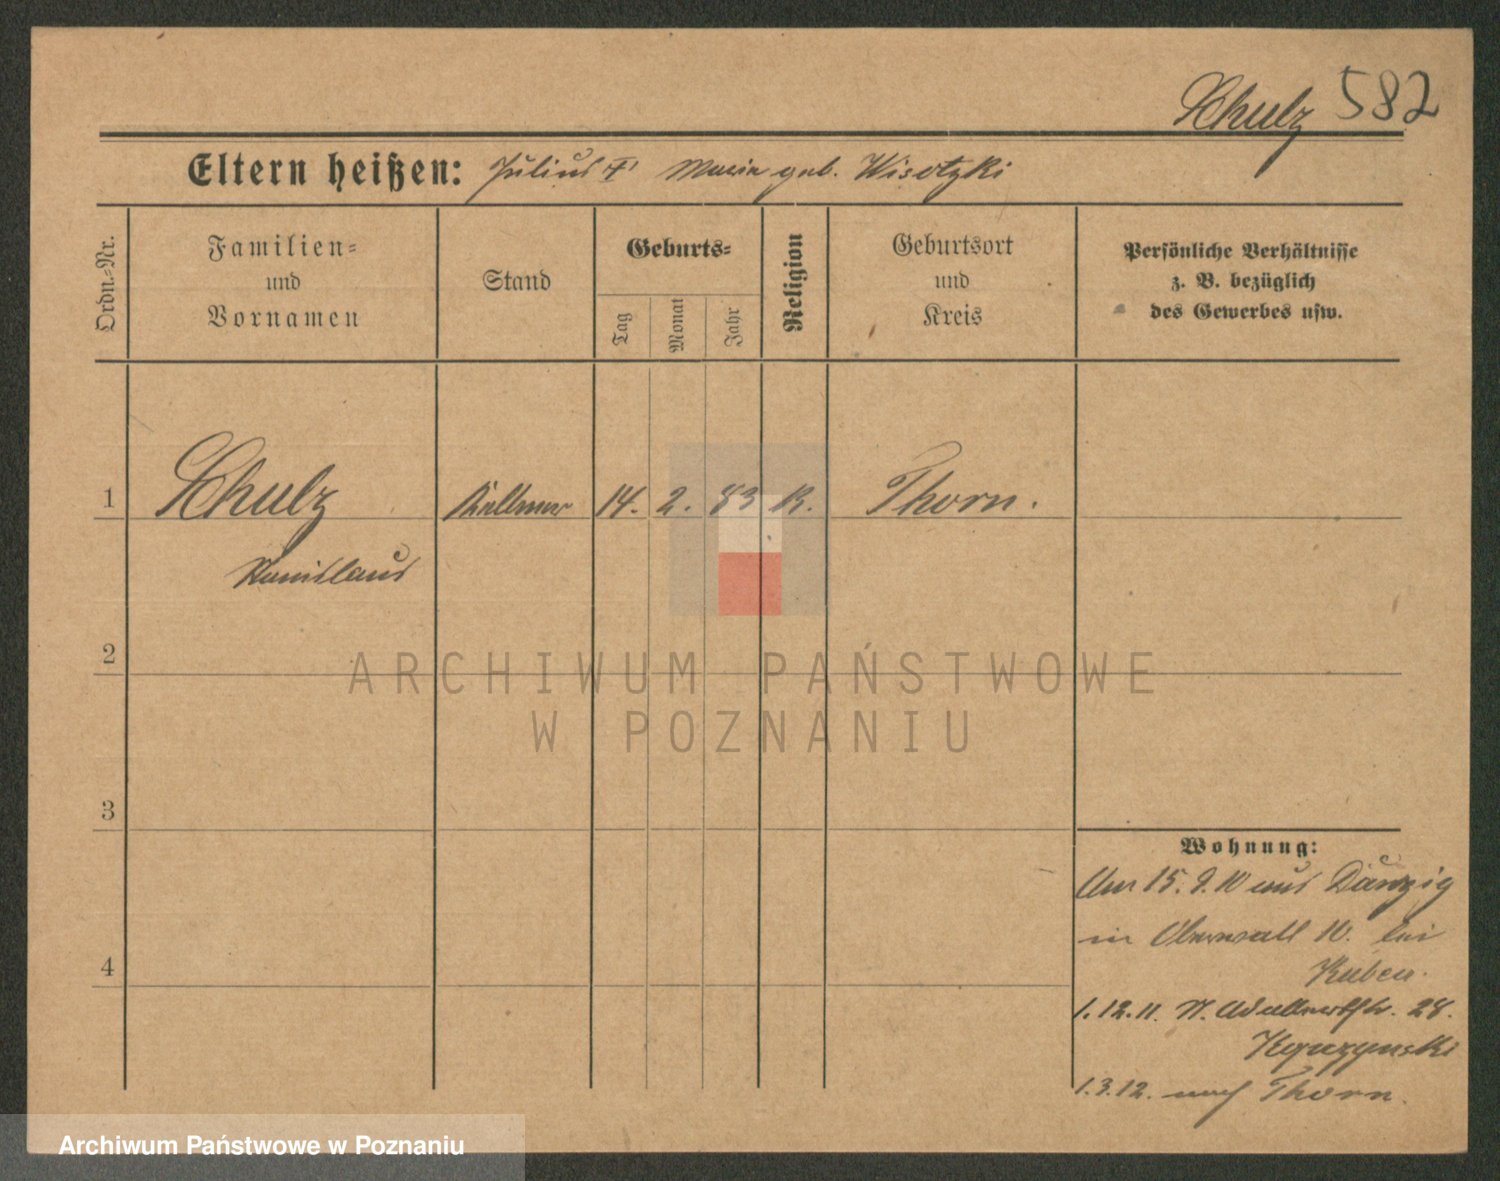 Schulz 582
Eltern heißen: Julius † Maria geb. Wisotzki
Ordn.-Nr.
Familien-
und
Vornamen
Stand
Geburts-
Tag
Monat
Jahr
Religion
Geburtsort
und
Kreis
Persönliche Verhältnisse
z. B. bezüglich
des Gewerbes usw.
1 Schulz Kellner 14. 2. 83 K. Thorn.
Stanislaus
2
ARCHIWUM PAŃSTWOWE
W POZNANIU
3
Wohnung:
Am 15. 9. 10 aus Danzig
in Oberwall 10. bei
4
Kuben.
1.12.11. N. 28.
1.3.12. nach Thorn.
Archiwum Państwowe w Poznaniu